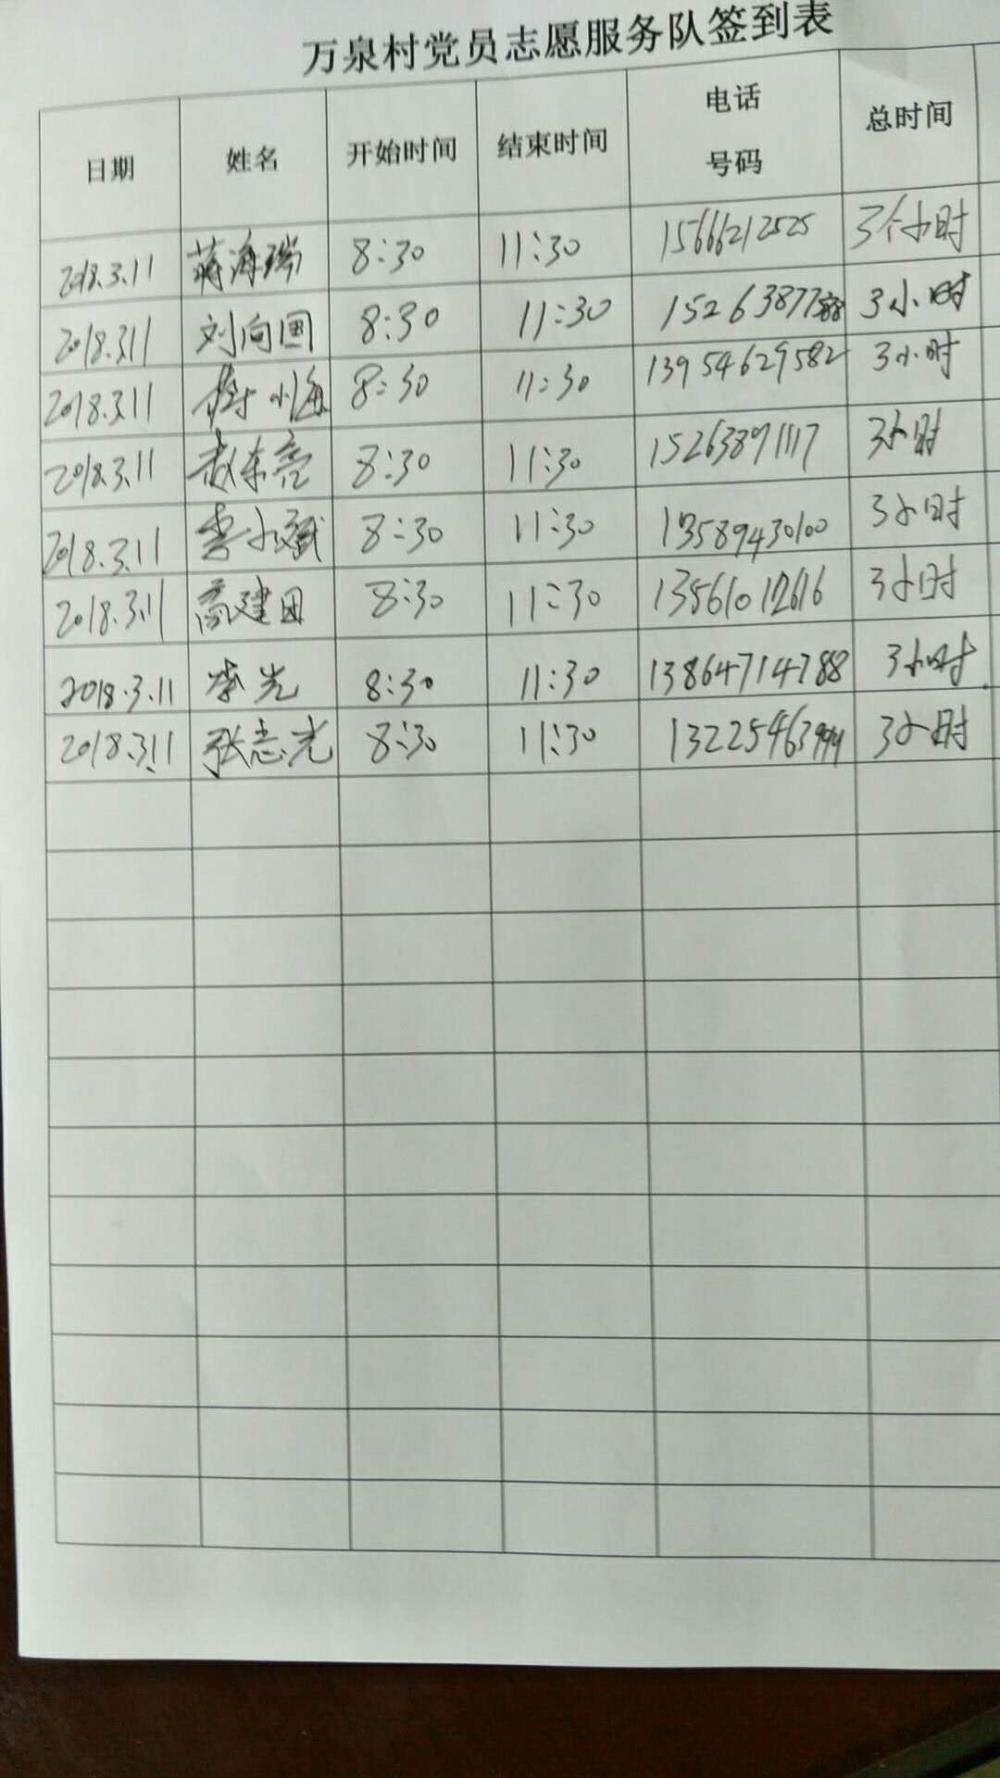 万泉村党员志愿服务队签到表
日期 姓名 开始时间 结束时间 电话号码 总时间
2018.3.11 蒋海瑞 8:30 11:30 15666212525 3个小时
2018.3.11 刘向国 8:30 11:30 15263877388 3小时
2018.3.11 小海 8:30 11:30 13954629582 3小时
2018.3.11 赵东亮 8:30 11:30 15263891117 3小时
2018.3.11 李小斌 8:30 11:30 13589430100 3小时
2018.3.11 高建国 8:30 11:30 13561012616 3小时
2018.3.11 李光 8:30 11:30 13864714788 3小时
2018.3.11 张志光 8:30 11:30 3小时